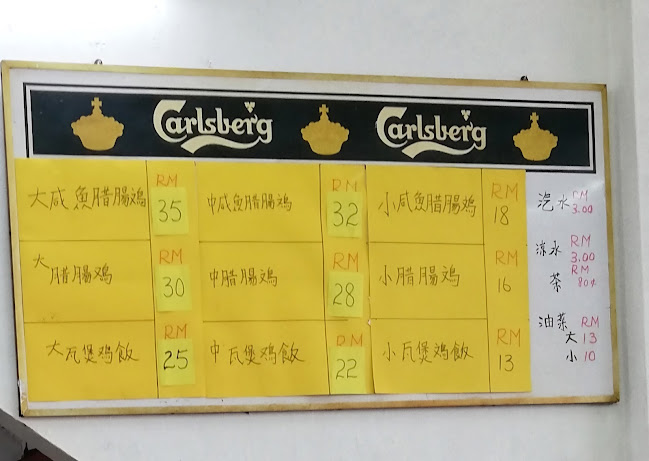 Carlsberg Carlsberg
大咸魚腊腸鸡 RM 35
中咸魚腊腸鸡 RM 32
小咸魚腊腸鸡 RM 18
汽水 RM 3.00
大腊腸鸡 RM 30
中腊腸鸡 RM 28
小腊腸鸡 RM 16
凉水 RM 3.00
茶 RM 80¢
大瓦煲鸡飯 RM 25
中瓦煲鸡飯 RM 22
小瓦煲鸡飯 RM 13
油菜 RM
大 13
小 10